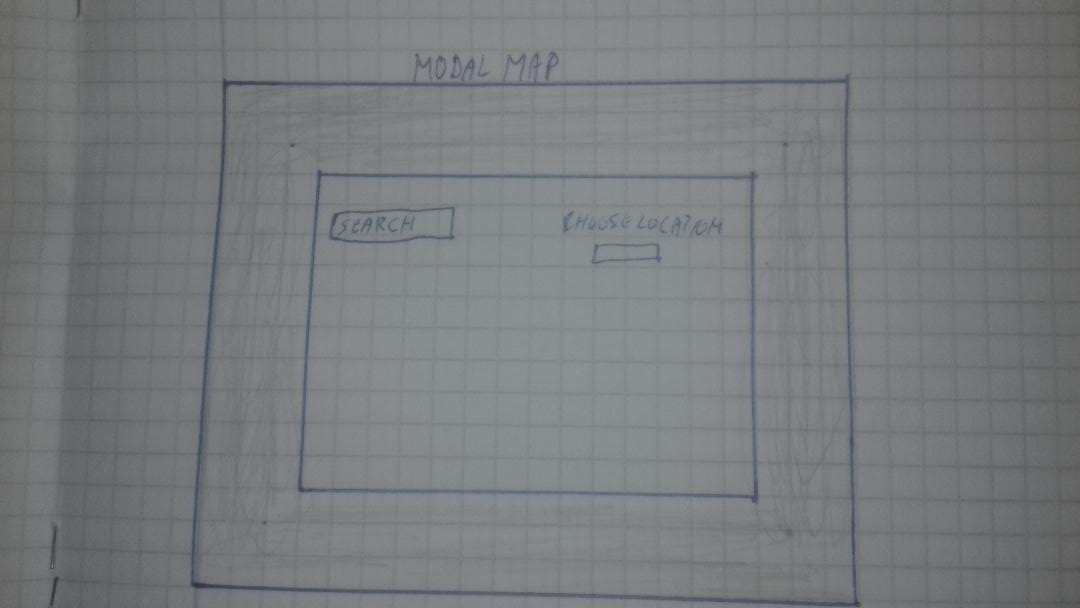 MODAL MAP
SEARCH
CHOOSE LOCATION